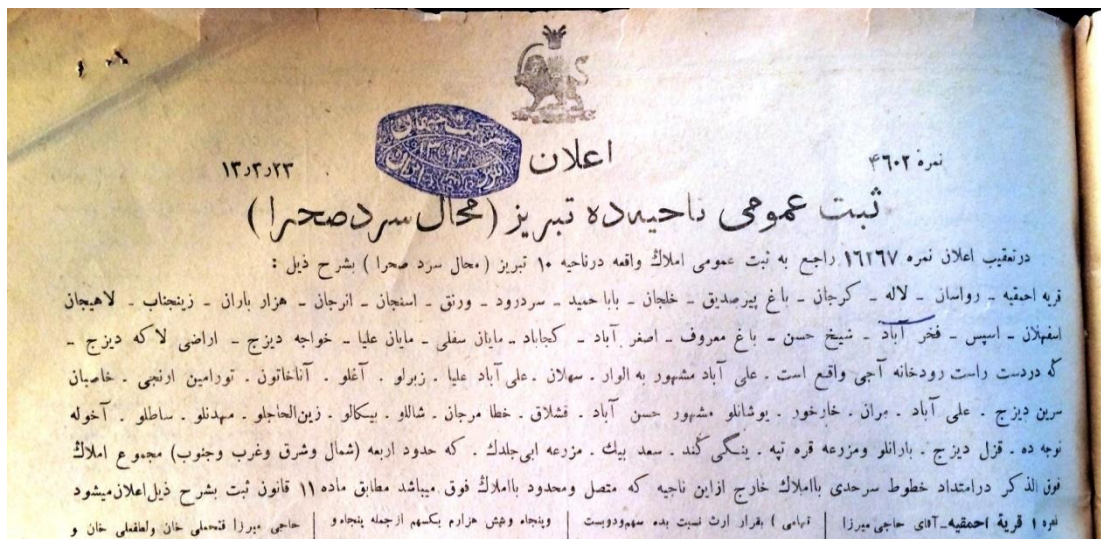 اعلان
نمره ۴۶۰۲
۱۳٫۲٫۲۳
ثبت عمومی ناحیه ده تبریز (محال سرد صحرا)
در تعقیب اعلان نمره ۱۶۲۶۷ راجع به ثبت عمومی املاک واقعه در ناحیه ۱۰ تبریز ( محال سرد صحرا ) بشرح ذیل :
قریه احمقیه ـ رواسان ـ لاله ـ کرجان ـ باغ پیرصدیق ـ خلجان ـ بابا حمید ـ سردرود ـ ورنق ـ اسفنجان ـ انرجان ـ هزار باران ـ زینجناب ـ لاهیجان
اسفهلان ـ اسپس ـ فخر آباد ـ شیخ حسن ـ باغ معروف ـ اصغر آباد ـ کجاباد ـ مایان سفلی ـ مایان علیا ـ خواجه دیزج ـ اراضی لاکه دیزج ـ
که دردست راست رودخانه آجی واقع است . علی آباد مشهور به الوار . سهلان . علی آباد علیا . زبرلو . آغلو . آناخاتون . تورامین ارنجی . خاصبان
سرین دیزج . علی آباد . بران . خارخور . یوشانلو مشهور حسن آباد . قشلاق . خطا مرجان . شاللو . بیکالو . زین‌الحاجلو . مهدنلو . ساطلو . آخوله
نوجه ده . قزل دیزج . بارانلو ومزرعه قره تپه . ینگی کند . سعد بیک . مزرعه ابی‌جلدک . که حدود اربعه (شمال وشرق وغرب وجنوب) مجموع املاک
فوق الذکر درامتداد خطوط سرحدی باملاک خارج ازاین ناحیه که متصل ومحدود باملاک فوق میباشد مطابق ماده ۱۱ قانون ثبت بشرح ذیل اعلان میشود
نمره ۱ قریة احمقیه ـ آقای حاجی میرزا
تهامی ) بقرار ارث نسبت بده سهم ودویست
وپنجاه وشش هزارم یکسهم ازجمله پنجاه و
حاجی میرزا فتحعلی خان ولطفعلی خان و